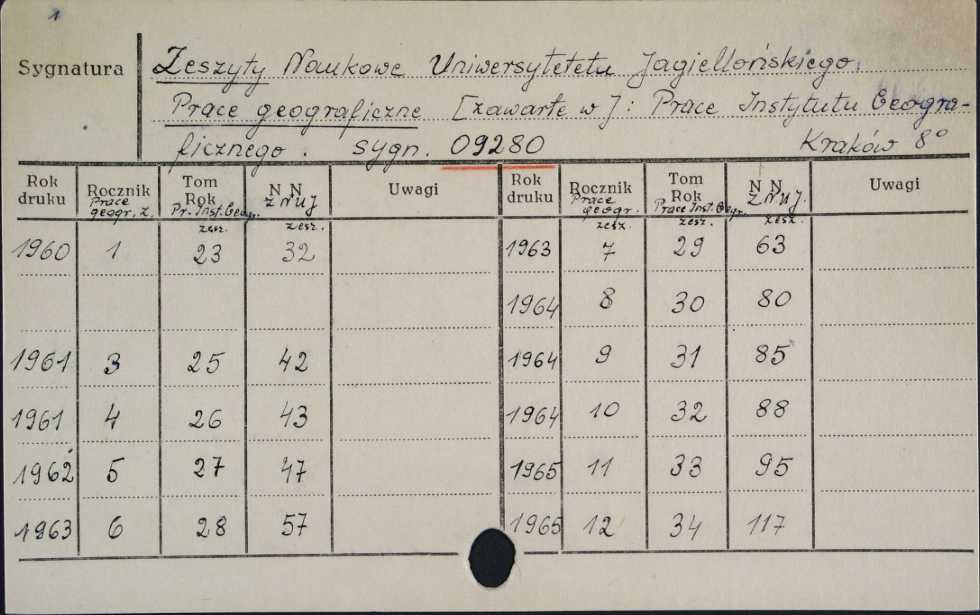 1
Sygnatura
Zeszyty Naukowe Uniwersytetetu Jagiellońskiego.
Prace geograficzne [zawarte w]: Prace Instytutu Geogra-
ficznego. sygn. 09280 Kraków 8°
Rok druku Rocznik Prace geogr. z. Tom Rok Pr. Inst. Geogr. zesz. N N Z N U J zesz. Uwagi Rok druku Rocznik Prace geogr. zesz. Tom Rok Prace Inst. Geogr. zesz. N N Z N U J. zesz. Uwagi
1960 1 23 32 1963 7 29 63
1964 8 30 80
1961 3 25 42 1964 9 31 85
1961 4 26 43 1964 10 32 88
1962 5 27 47 1965 11 33 95
1963 6 28 57 1965 12 34 117